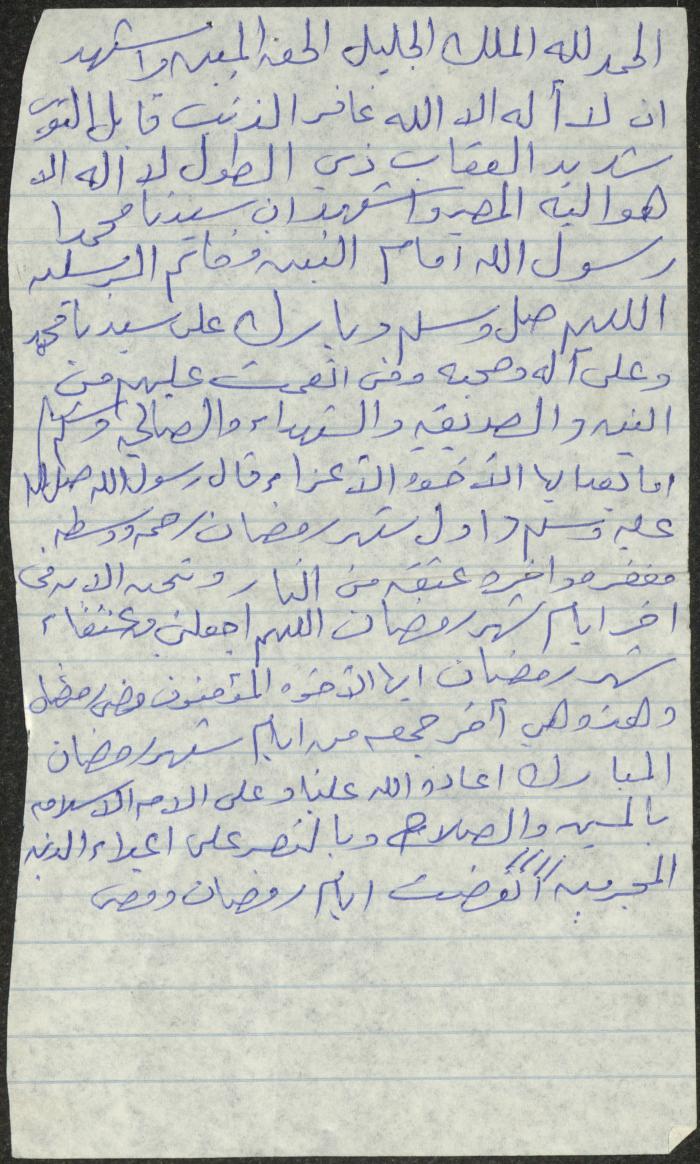 الحمد لله الملك الجليل الحق المبين واشهد
ان لا أله الا الله غافر الذنب قابل التوب
شديد العقاب ذي الطول لا اله الا
هو اليه المصير واشهد ان سيدنا محمدا
رسول الله امام النبين وخاتم المرسلين
اللهم صل وسلم وبارك على سيدنا محمد
وعلى آله وصحبه ومن انعمت عليهم من
النبين والصديقين والشهداء والصالحين وسلم
اما بعد ايها الأخوه الأعزاء قال رسول الله صلى الله
عليه وسلم اول شهر رمضان رحمه ووسطه
مغفره واخره عتقه من النار ونحن الان في
اخر ايام شهر رمضان اللهم اجعلنا من عتقاء
شهر رمضان ايها الأخوه المؤمنون مضى رمضان
وهذه هي آخر جمعه من ايام شهر رمضان
المبارك اعاده الله علينا وعلى الامه الاسلاميه
باليمن والصلاح وبالنصر على اعداء الدين
المجرمين انقضت ايام رمضان ومضى